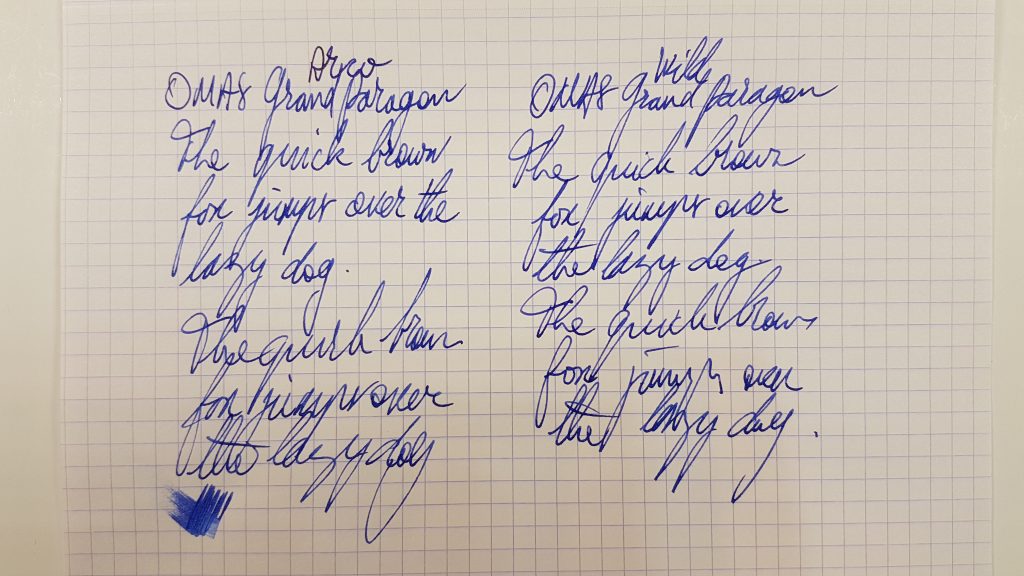 Arco
OMAS Grand Paragon
The quick brown
fox jumps over the
lazy dog.
The quick brown
fox jumps over
the lazy dog
Wild
OMAS Grand Paragon
The quick brown
fox jumps over
the lazy dog
The quick brown
fox jumps over
the lazy dog.